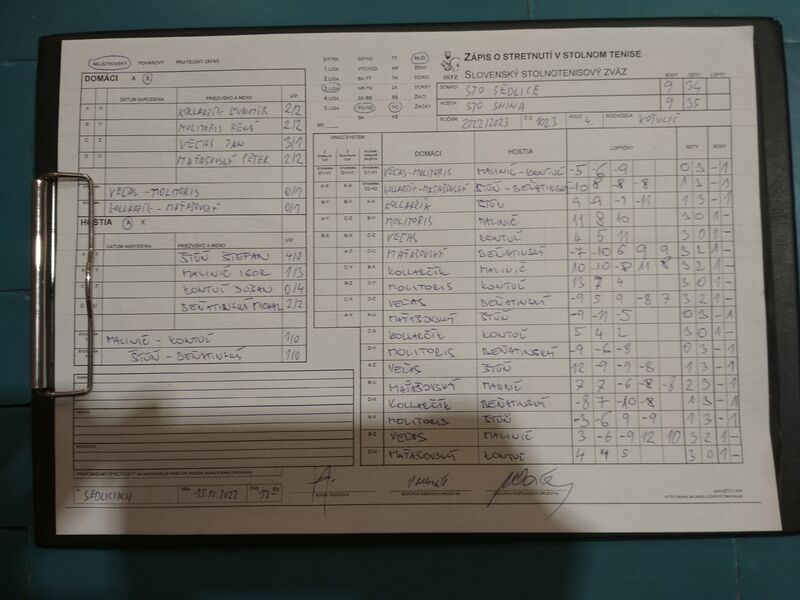 MAJSTROVSKÝ POHÁROVÝ PRIATEĽSKÝ ZÁPAS
EXTRA ZÁPAD TT MUŽI
1.LIGA VÝCHOD NR ŽENY
2.LIGA BA-TT TN DORCI
3.LIGA NR-TN ZA DORKY
4.LIGA ZA-BB BB ŽIACI
5.LIGA PO-KE PO ŽIAČKY
BA KE
SSTZ
ZÁPIS O STRETNUTÍ V STOLNOM TENISE
SLOVENSKÝ STOLNOTENISOVÝ ZVÄZ
BODY SETY LOPTY
DOMÁCI STO SEDLICE 9 34
HOSTIA STO SNINA 9 35
ROČNÍK 2022/2023 Č.Z. 1023 KOLO 4. ROZHODCA KOTULIČ
DOMÁCI A X
DÁTUM NARODENIA PRIEZVISKO A MENO V/P
A X KOLLARČÍK ĽUBOMÍR 2/2
B Y MOLITORIS RENÉ 2/2
C Z VEĽAS JAN 3/1
D U MAŤAŠOVSKÝ PETER 2/2
VEĽAS - MOLITORIS 0/1
KOLLARČÍK - MAŤAŠOVSKÝ 0/1
HOSTIA A X
DÁTUM NARODENIA PRIEZVISKO A MENO V/P
ŠTÚŇ ŠTEFAN 4/0
MALINIČ IGOR 1/3
KONTUĽ DUŠAN 0/4
BEŇATINSKÝ MICHAL 2/2
MALINIČ - KONTUĽ 1/0
ŠTÚŇ - BEŇATINSKÝ 1/0
HRACÍ SYSTÉM DOMÁCI HOSTIA LOPTIČKY SETY BODY
VEĽAS-MOLITORIS MALINIČ-KONTUĽ -5 -6 -9 0 3 - 1
KOLLARČÍK-MAŤAŠOVSKÝ ŠTÚŇ-BEŇATINSKÝ -10 8 -8 -8 1 3 - 1
KOLLARČÍK ŠTÚŇ
MOLITORIS MALINIČ 11 8 10 3 0 1 -
VEĽAS KONTUĽ 4 5 11 3 0 1 -
MAŤAŠOVSKÝ BEŇATINSKÝ -7 -10 6 9 9 3 2 1 -
KOLLARČÍK MALINIČ 10 -10 -8 11 8 3 2 1 -
MOLITORIS KONTUĽ 13 7 4 3 0 1 -
VEĽAS BEŇATINSKÝ -9 5 9 -8 7 3 2 1 -
MAŤAŠOVSKÝ ŠTÚŇ -9 -11 -5 0 3 - 1
C-X KOLLARČÍK KONTUĽ 5 4 2 3 0 1 -
D-Y MOLITORIS BEŇATINSKÝ -9 -6 -8 0 3 - 1
A-Z VEĽAS ŠTÚŇ 12 -9 -9 -8 1 3 - 1
B-U MAŤAŠOVSKÝ MALINIČ 7 7 -6 -8 -8 2 3 - 1
D-X KOLLARČÍK BEŇATINSKÝ -8 7 -10 -8 1 3 - 1
A-Y MOLITORIS ŠTÚŇ -3 -6 9 -9 1 3 - 1
B-Z VEĽAS MALINIČ 3 -6 -9 12 10 3 2 1 -
C-U MAŤAŠOVSKÝ KONTUĽ 4 4 5 3 0 1 -
V SEDLICIACH DŇA 15.10.2022 ČAS